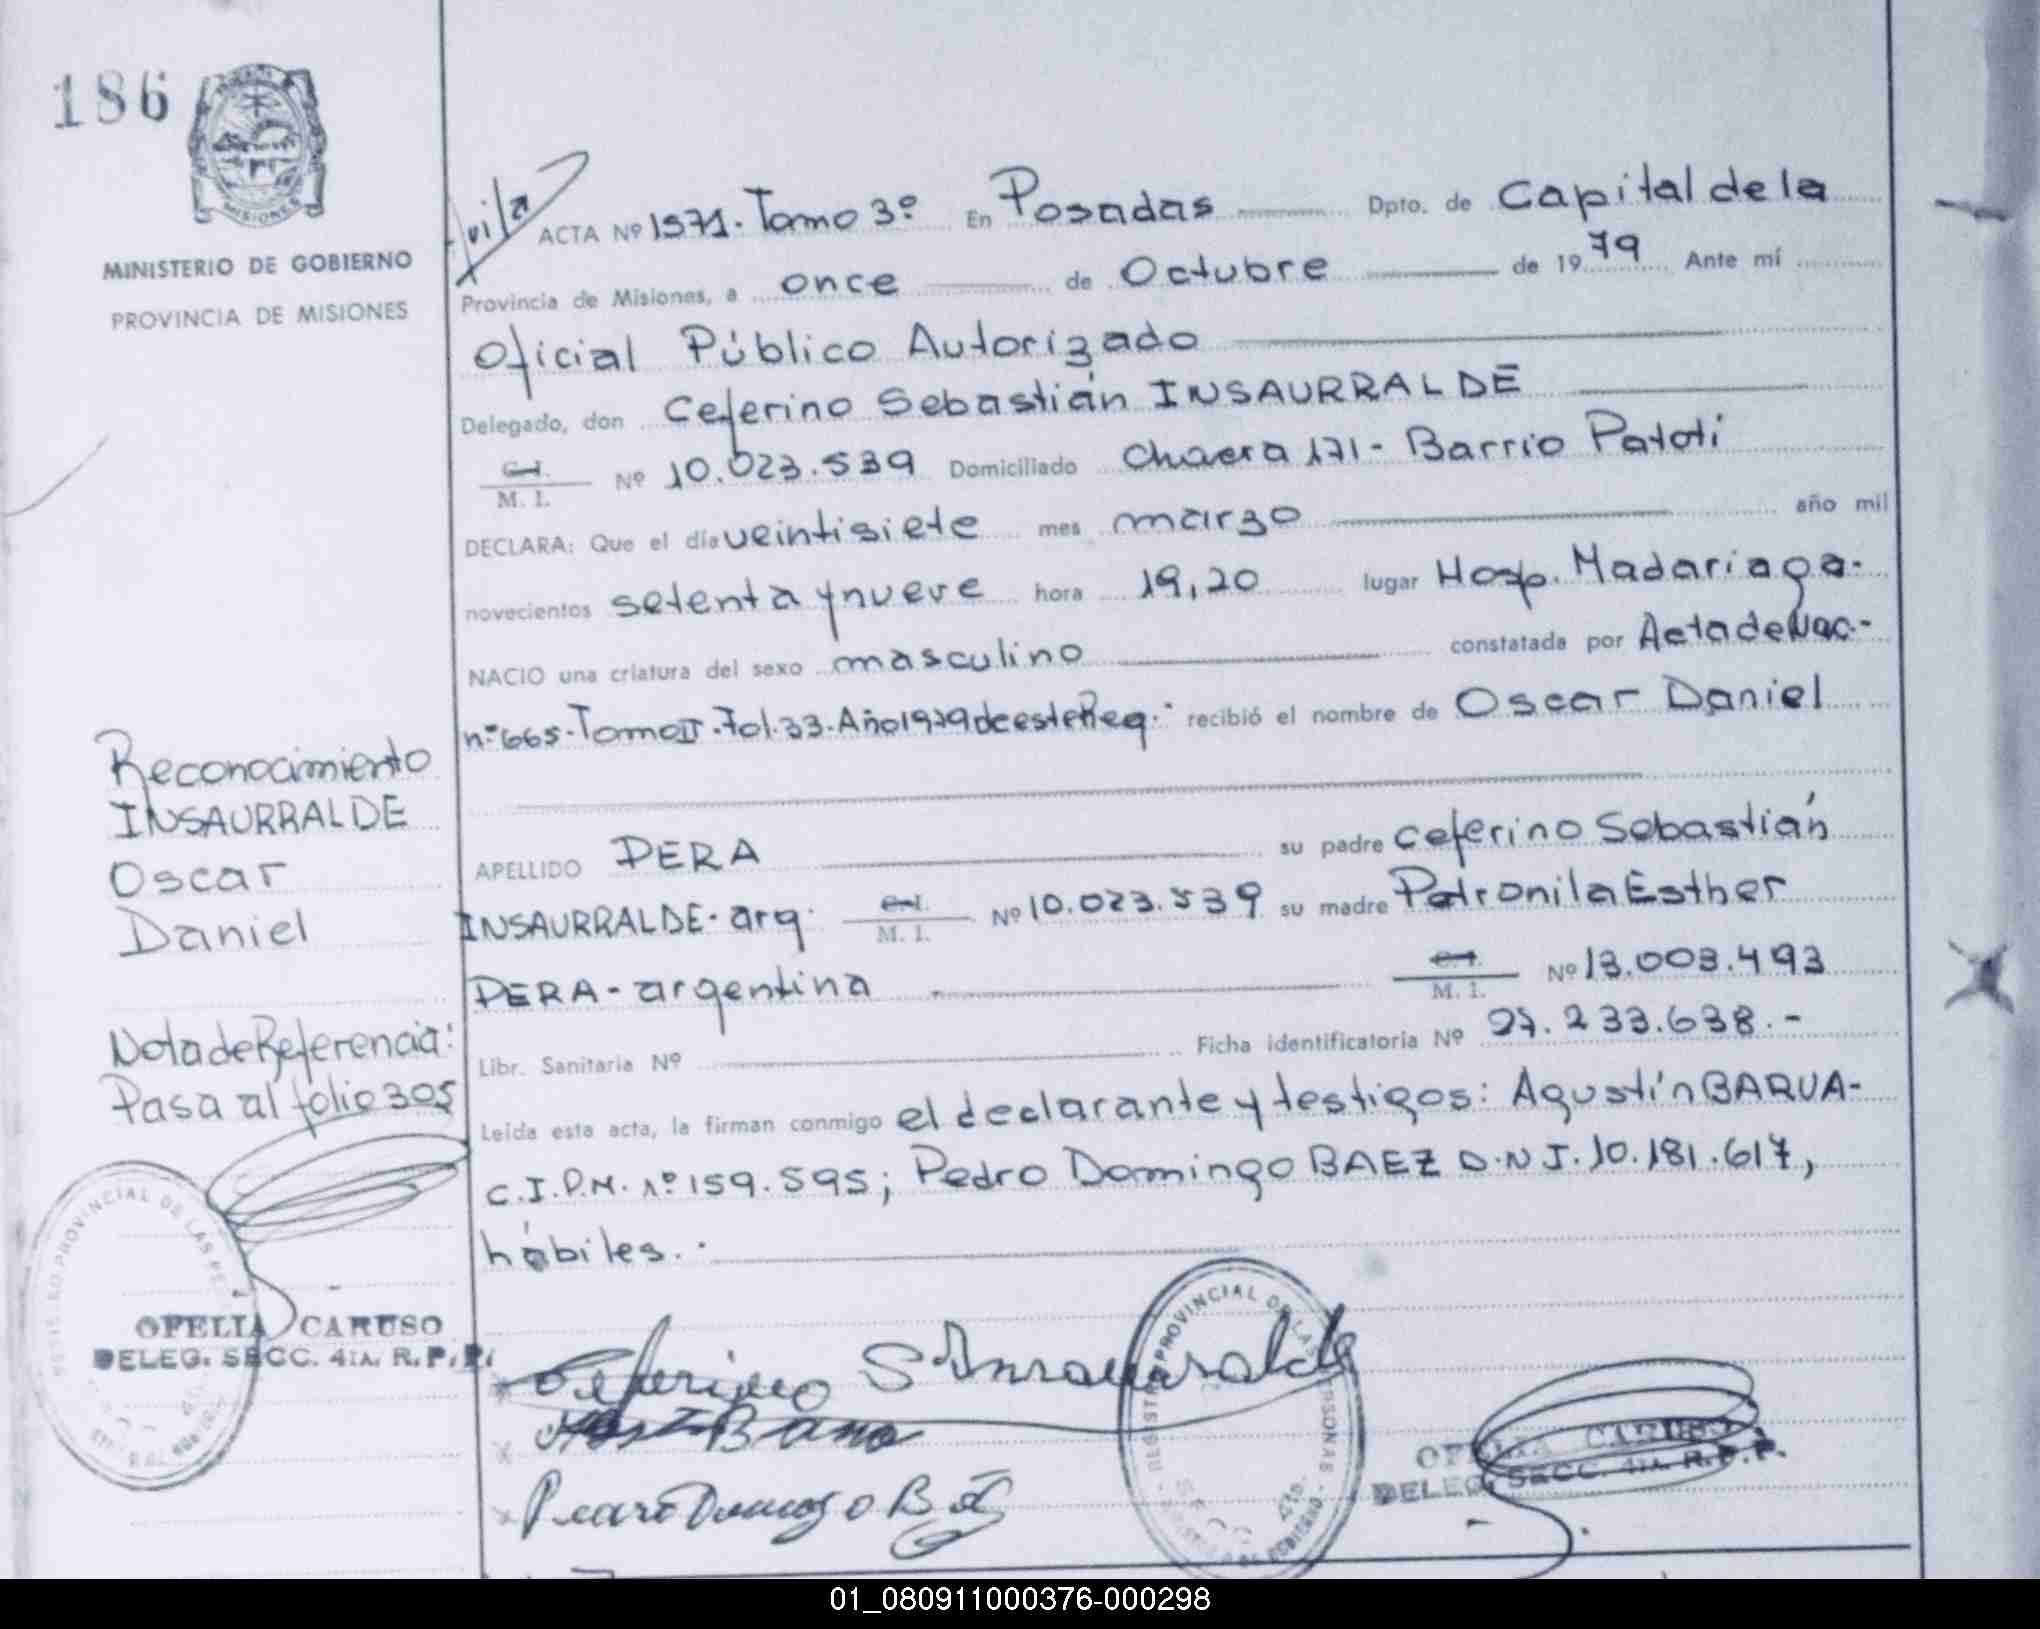 186
MISIONES
MINISTERIO DE GOBIERNO
PROVINCIA DE MISIONES
ACTA Nº 1571. Tomo 3º En Posadas Dpto. de Capital de la
Provincia de Misiones, a once de Octubre de 1979 Ante mí
Oficial Público Autorizado
Delegado, don Ceferino Sebastián INSAURRALDE
C. I. M. I. Nº 10.023.539 Domiciliado Chacra 171 - Barrio Patotí
DECLARA: Que el día veintisiete mes marzo año mil
novecientos setenta y nueve hora 19,20 lugar Hosp. Madariaga.
NACIO una criatura del sexo masculino constatada por Acta de Nac.-
nº 665. Tomo II. Fol. 33. Año 1979 de este Reg. recibió el nombre de Oscar Daniel
APELLIDO PERA su padre Ceferino Sebastián
INSAURRALDE. arg. C. I. M. I. Nº 10.023.539 su madre Petronila Esther
PERA - argentina C. I. M. I. Nº 13.003.493
Libr. Sanitaria Nº Ficha identificatoria Nº 27.233.638.-
Leída esta acta, la firman conmigo el declarante y testigos: Agustín BARUA-
C.I.P.M. nº 159.595; Pedro Domingo BAEZ D.N.I. 10.181.617,
hábiles.
Reconocimiento
INSAURRALDE
Oscar
Daniel
Nota de Referencia:
Pasa al folio 305
OFELIA CARUSO
DELEG. SECC. 4TA. R. P. P.
Ceferino S Insaurralde
Pedro Domingo B
REGISTRO PROVINCIAL DE LAS PERSONAS
OFELIA CARUSO
DELEG. SECC. 4TA. R. P. P.
01_080911000376-000298